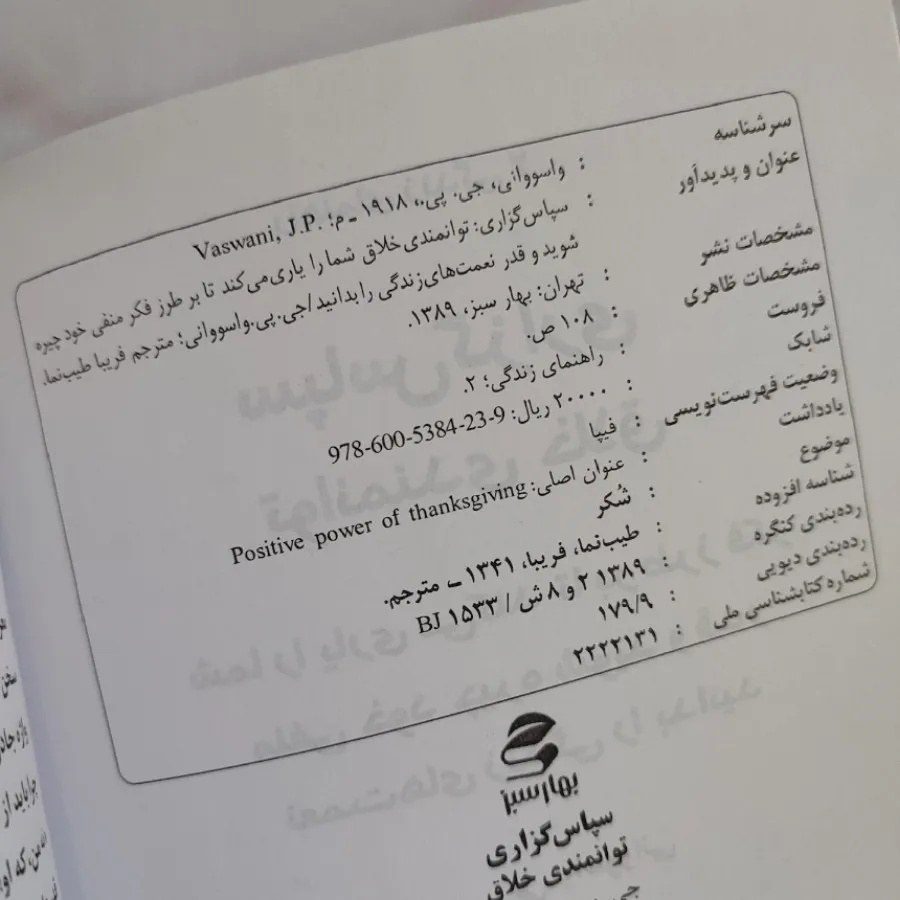 سرشناسه : واسووانی، جی. پی.، ۱۹۱۸ ـ م؛ Vaswani, J.P.
عنوان و پدیدآور : سپاس‌گزاری: توانمندی خلاق شما را یاری می‌کند تا بر طرز فکر منفی خود چیره
شوید و قدر نعمت‌های زندگی را بدانید/جی.پی.واسووانی؛ مترجم فریبا طیب‌نما.
مشخصات نشر : تهران: بهار سبز، ۱۳۸۹.
مشخصات ظاهری : ۱۰۸ ص.
فروست : راهنمای زندگی؛ ۲.
شابک : ۲۰۰۰۰ ریال: 978-600-5384-23-9
وضعیت فهرست‌نویسی : فیپا
یادداشت : عنوان اصلی: Positive power of thanksgiving
موضوع : شُکر
شناسه افزوده : طیب‌نما، فریبا، ۱۳۴۱ ـ مترجم.
رده‌بندی کنگره : ۱۳۸۹ ۲ و ۸ ش / BJ ۱۵۳۳
رده‌بندی دیویی : ۱۷۹/۹
شماره کتابشناسی ملی : ۲۲۲۲۱۳۱
بهار سبز
سپاس‌گزاری
توانمندی خلاق
سخن
چرا باید از